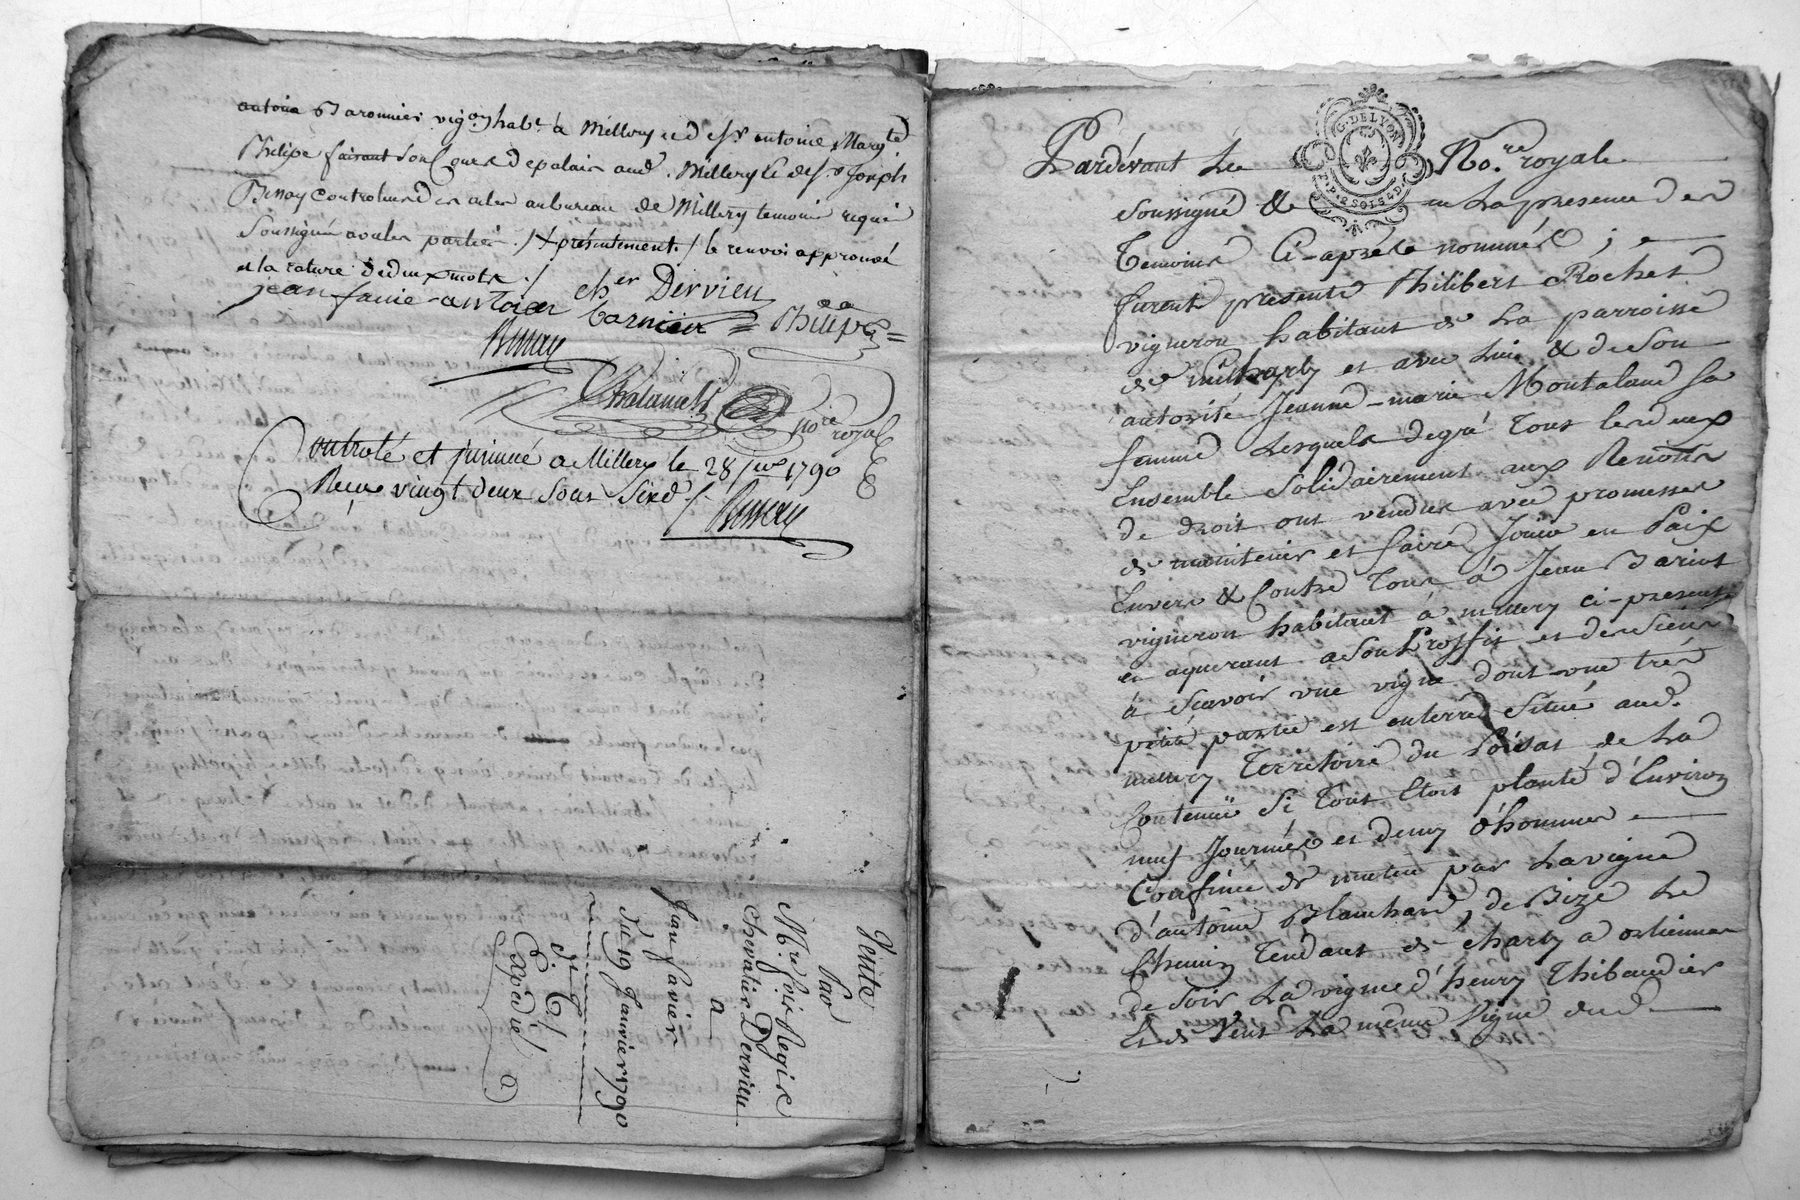 antoine Baronnier vig.on hab.t à Millery et d. s.r antoine Mary
Philipe faisant
Benay controleur des actes au bureau de Millery temoins requis
Soussignés avec les parties ./. + présentement ./ le renvoi approuvé
et la rature de deux mots ./.
jean favie antoier barnier ch.er Dervieu Philipe
Benay
no.re royal
Controlé et insinué a Millery le 28 j.er 1790
Reçu vingt deux sous six d.
Benay
Vente
Par
M.re Loïs Regis
Chevalier Dervieu
a
Jean Favier
du 19 Janvier 1790
Expédié
G. DE LYON
Pardevant Le No.re royal
soussigné & en la presence des
Temoins Ci-après nommés ;
furent présents Philibert Rochet
vigneron habitant de La parroisse
de Charly et avec lui & de Son
autorité Jeanne-marie Montaland sa
femme Lesquels de gré tous les deux
Ensemble Solidairement aux Renons
de droit ont vendus avec promesses
de maintenir et faire Jouir en Paix
Envers & Contre Tous à Jean Bariot
vigneron habitant à millery ci-present
et aquerant a Son Proffit et des Siens
à Sçavoir vne vigne dont vne très
petite partie est enterre Situé aud.
millery Territoire du Loisat de La
Contenüe Si Tout Etoit planté d'Environ
neuf Journées et demy d'hommes
Confinée de matin par La vigne
d'antoine Blanchard, de Bize Le
Chemin Tendant de charly a orlienas
de Soir La vigne d'henry Thibaudier
Et de Vent La même Vigne dud.